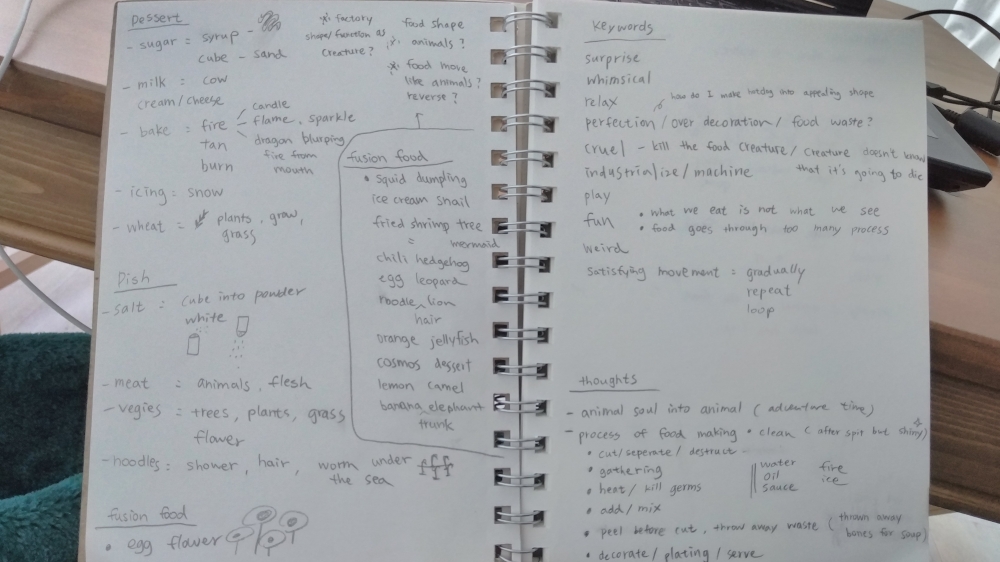 Dessert
- sugar = syrup -
cube - sand
- milk = cow
cream/cheese
- bake = fire
candle
flame, sparkle
dragon blurping
fire from
mouth
tan
burn
- icing = snow
- wheat = plants, grow,
grass
※ factory
shape/function as
creature?
food shape
animals?
※ food move
like animals?
reverse?
fusion food
• squid dumpling
ice cream snail
fried shrimp tree
= mermaid
chili hedgehog
egg leopard
noodle lion
hair
orange jellyfish
cosmos dessert
lemon camel
banana elephant
trunk
Dish
- salt = cube into powder
white
- meat = animals, flesh
- vegies = trees, plants, grass
flower
- noodles = shower, hair, worm under
the sea
fusion food
• egg flower
Keywords
surprise
whimsical
relax
how do I make hotdog into appealing shape
perfection/over decoration/food waste?
cruel - kill the food creature/creature doesn't know
that it's going to die
industrialize/machine
play
fun
• what we eat is not what we see
• food goes through too many process
weird
satisfying movement = gradually
repeat
loop
thoughts
- animal soul into animal (adventure time)
- process of food making • clean (after spit but shiny)
• cut/seperate/destruct -
• gathering
• heat/kill germs
water
oil
sauce
fire
ice
• add/mix
• peel before cut, throw away waste (thrown away
bones for soup)
• decorate/plating/serve